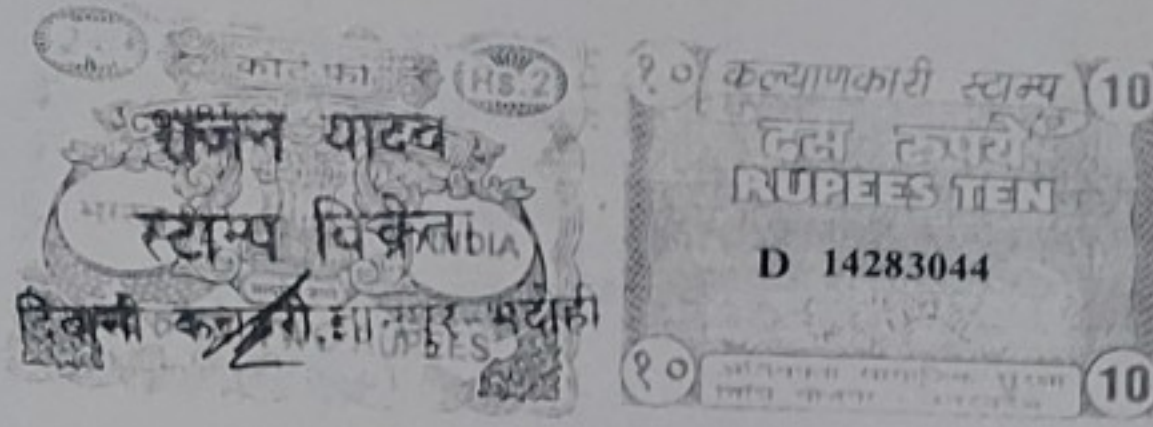 कोर्ट फी
HS.2
राजन यादव
स्टाम्प विक्रेता
INDIA
दिवानी कचहरी, ज्ञानपुर-भदोही
१० कल्याणकारी स्टाम्प 10
दस रुपये
RUPEES TEN
D 14283044
१० 10